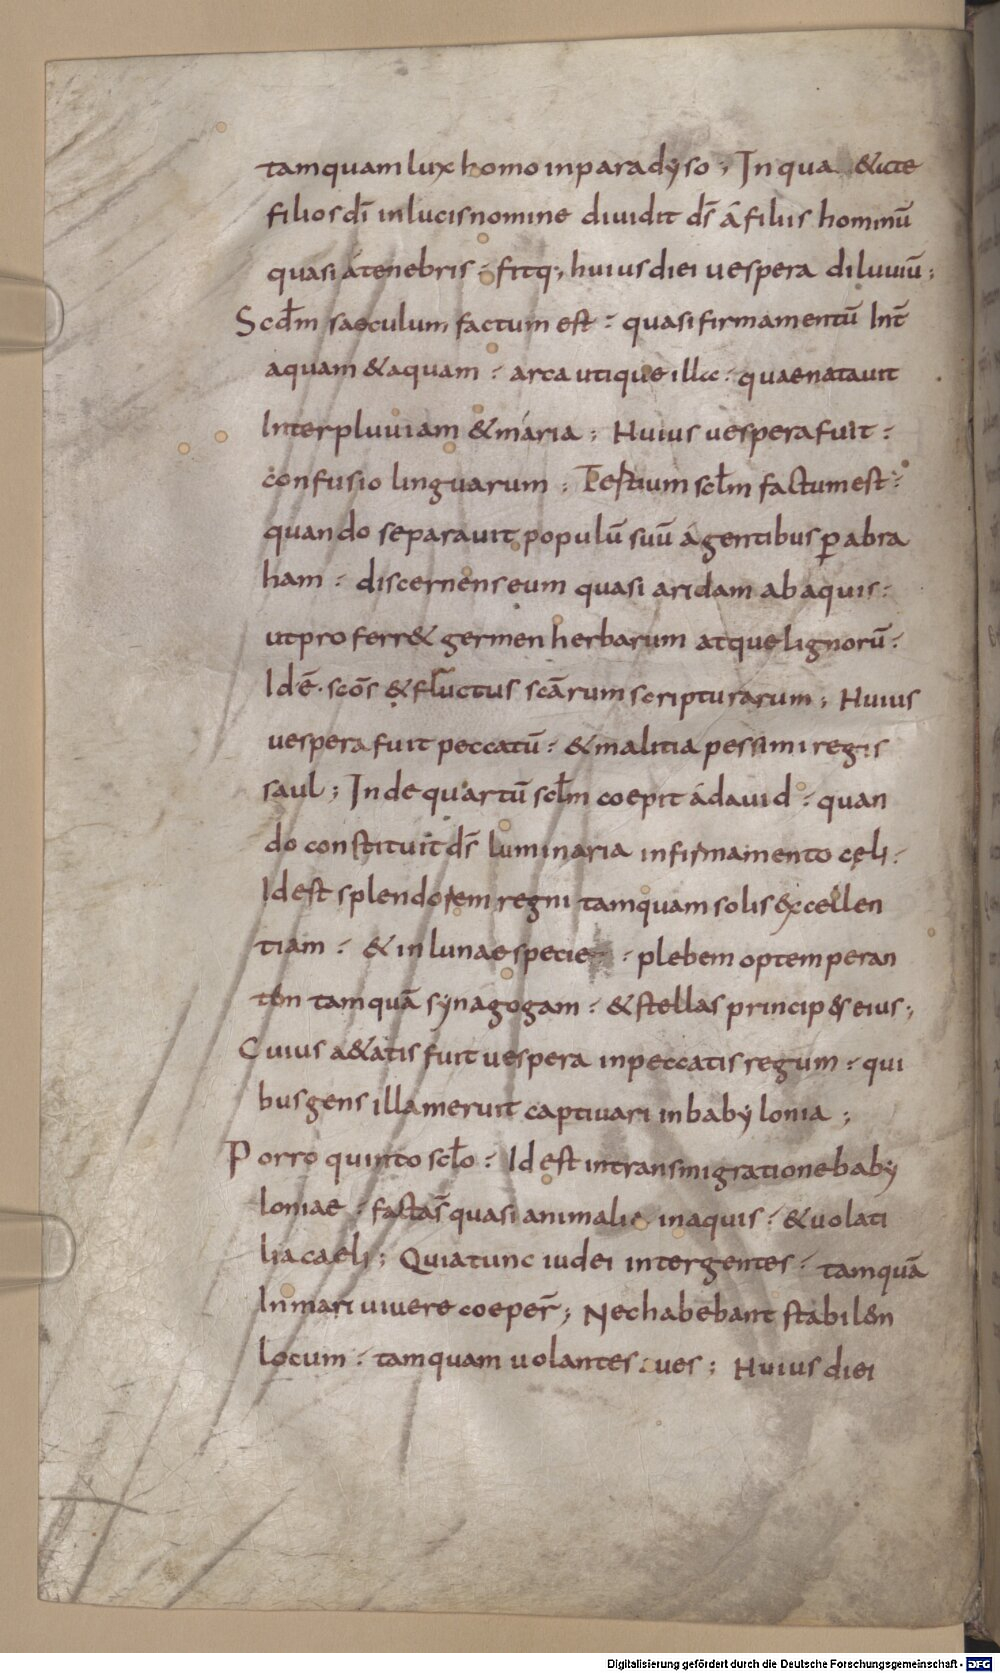 tamquam lux homo in paradyso ; In qua &ate
filios dī in lucis nomine diuidit ds̄ á filiis hominū
quasi á tenebris ; fitq; huius diei uespera diluuiū ;
Scd̄m saeculum factum est : quasi firmamentū Int̄
aquam & aquam : arca utique illa : quae natauit
Inter pluuiam & maria ; Huius uespera fuit :
confusio linguarum ; Tertium scl̄m factum est :
quando separauit populū suū á gentibus ꝑ abra
ham : discernens eum quasi aridam ab aquis :
ut proferr& germen herbarum atque lignorū :
Id·ē· scōs & fructus scārum scripturarum ; Huius
uespera fuit peccatū : & malitia pessimi regis
saul ; Inde quartū scl̄m coepit á dauid : quan
do constituit ds̄ luminaria in firmamento cęli :
Id est splendorem regni tamquam solis excellen
tiam : & in lunae specie : plebem optemperan
tem tamquā synagogam : & stellas princip&s eius ;
Cuius a&atis fuit uespera in peccatis regum : qui
bus gens illa meruit captiuari in babylonia ;
Porro quinto scl̄o : Id est in transmigratione baby
loniae : factas̄ quasi animalia in aquis : & uolati
lia caeli ; Quia tunc iudei inter gentes : tamquā
In mari uiuere coeper̄ ; Nec habebant stabilem
locum : tamquam uolantes aues ; Huius diei
Digitalisierung gefördert durch die Deutsche Forschungsgemeinschaft - DFG